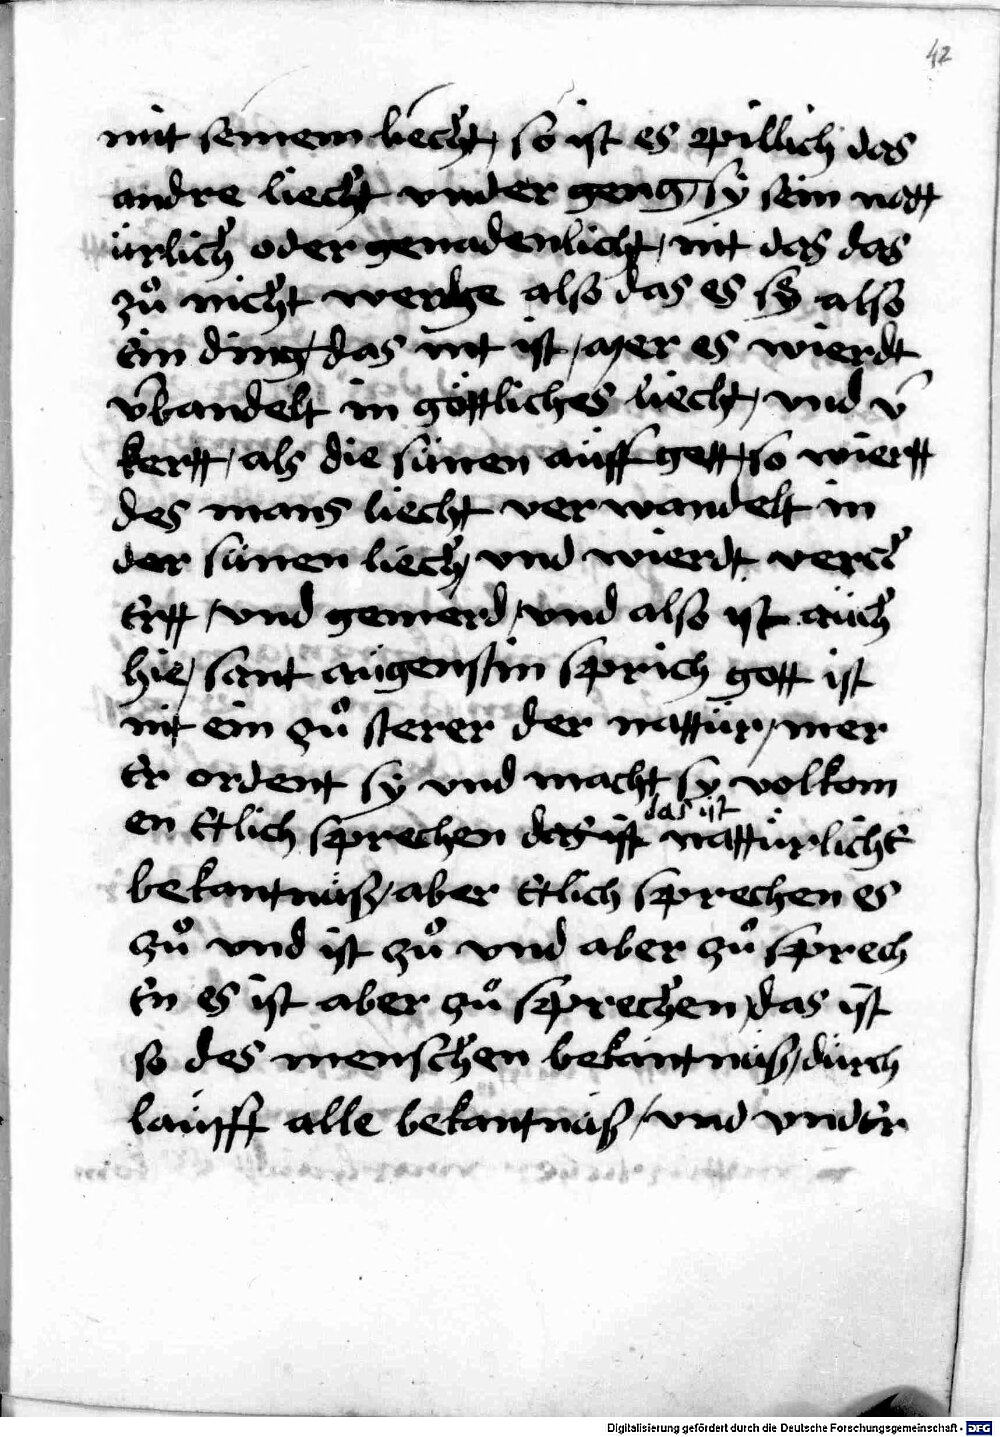 42
mit seinem liecht, so ist es pillich das
andre liecht vnder geng, sy sein natt
ürlich oder genadenlicht, nit das das
zů nicht werde also das es sÿ also
ein ding, das nit ist, aber es wierdt
v̄bandelt in göttliches liecht, vnd v̄
kertt, als die sünen auff gett, so wiertt
des mans liecht verwandelt in
der sünen liecht, vnd wierdt
ertt, vnd gemerd, vnd also ist auch
hie, sant augenstin sprich gott ist
nit ein zů sterer der nattür, mer
er ordent sy vnd macht sy volkom
das ist
en etlich sprechen das ist nattürliche
bekantnüß, aber etlich sprechen es
zů vnd ist zů vnd aber zů sprech
en es ist aber zů sprechen, das ist
so des menschen bekantnüß, durch
lauff alle bekantnüß, vnd vnder
Digitalisierung gefördert durch die Deutsche Forschungsgemeinschaft - DFG